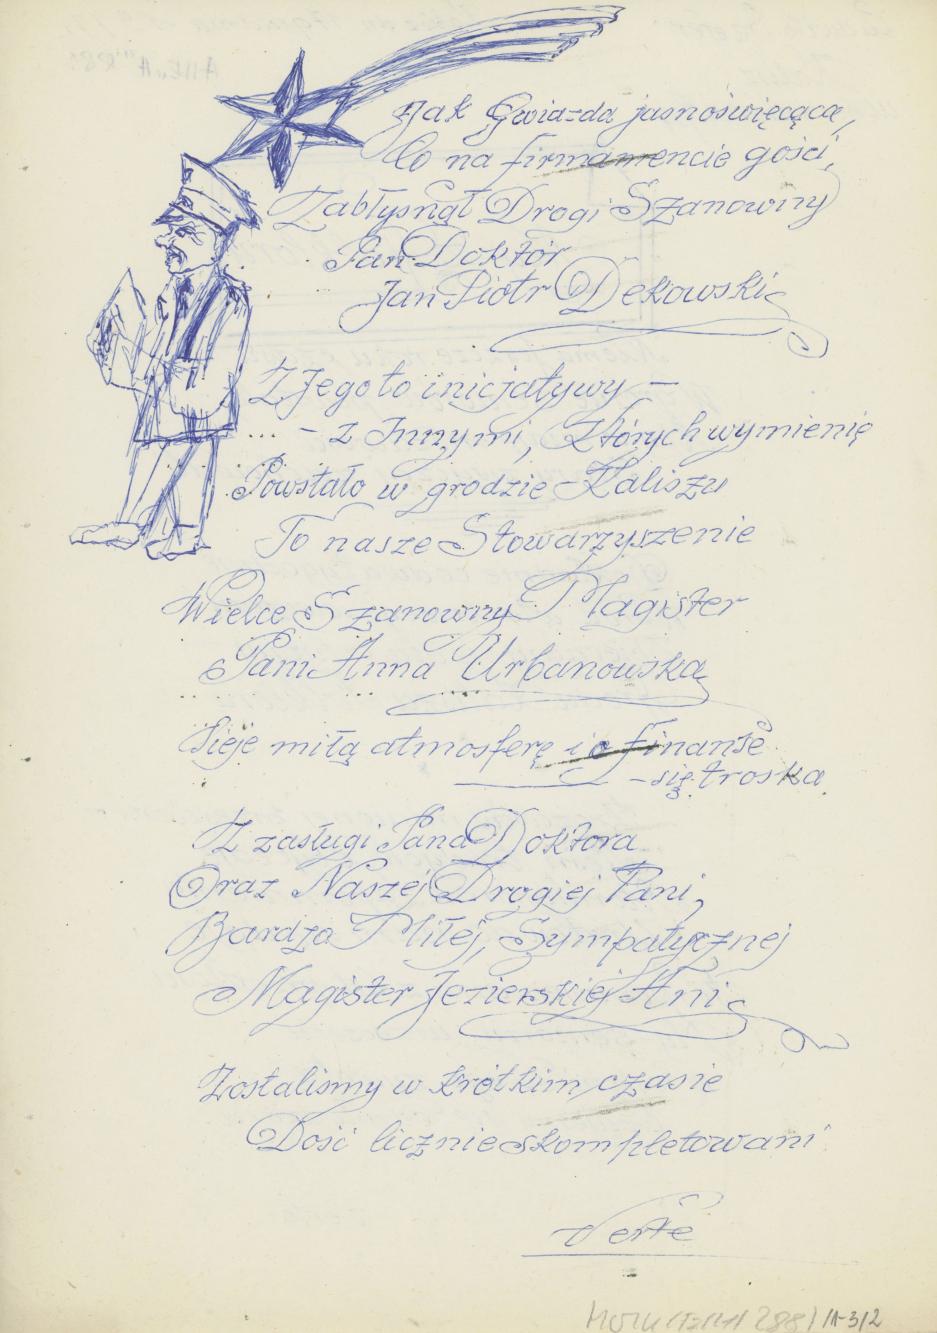 Jak Gwiazda jasnoświęcąca,
Co na firmamencie gości,
Zabłysnął Drogi Szanowny
Pan Doktór
Jan Piotr Dekowski
Z Jego to inicjatywy –
... – z Innymi, których wymienię
Powstało w grodzie – Kaliszu
To nasze Stowarzyszenie
Wielce Szanowny Magister
Pani Anna Urbanowska
Sieje miłą atmosferę i o finanse
– się troska.
Z zasługi Pana Doktora
Oraz Naszej Drogiej Pani,
Bardzo Miłej, Sympatycznej
Magister Jezierskiej Ani
Zostalismy w krótkim czasie
Dość licznie skompletowani
Verte
/1-3/2